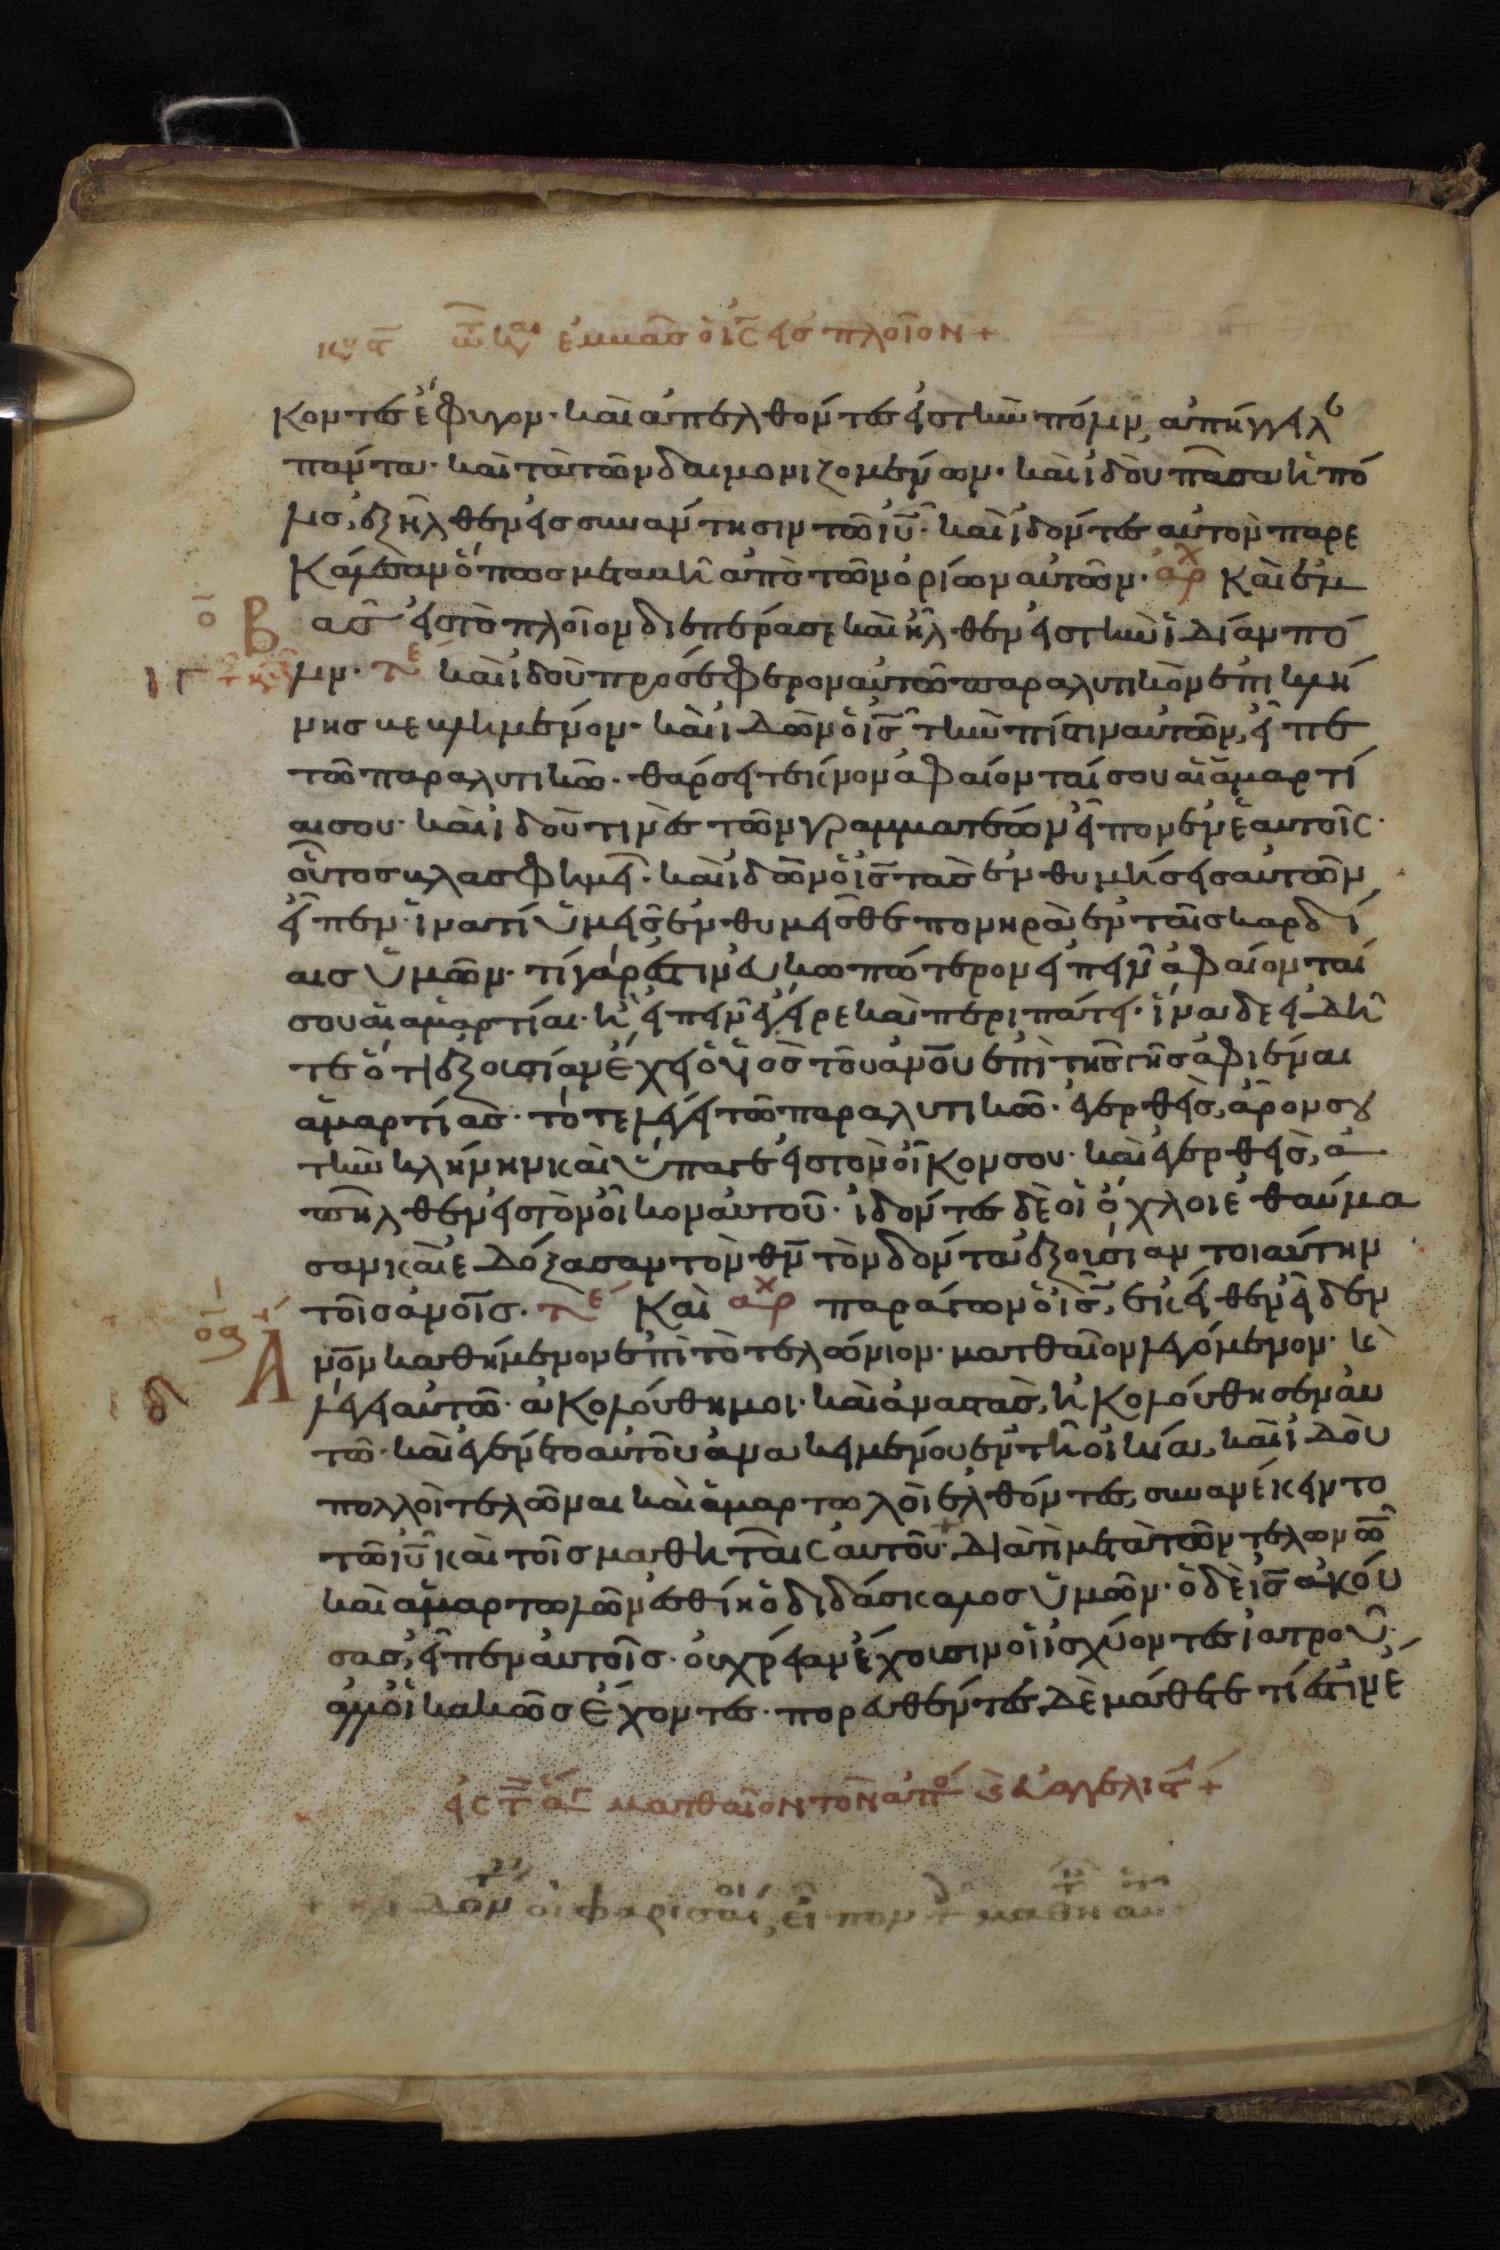 κυ α τω κ ἐμβὰς ὁ ις εἰς πλοῖον +
κοντες ἔφυγον· καὶ ἀπελθόντες εἰς τὴν πόλιν, ἀπήγγειλ
πάντα· καὶ τὰ τῶν δαιμονιζομένων· καὶ ἰδοὺ πᾶσα ἡ πό
λις, ἐξῆλθεν εἰς συνάντησιν τῶ ιυ· καὶ ἰδόντες αὐτὸν παρε
κάλεσαν ὅπως μεταβῆ ἀπὸ τῶν ὁρίων αὐτῶν· αρχ Καὶ ἐμ
βὰς εἰς τὸ πλοῖον διεπέρασε καὶ ἦλθεν εἰς τὴν ἰδίαν πό
ιγ λιν· τε καὶ ἰδοὺ προσέφερον αὐτῶ παραλυτικὸν ἐπὶ κλί
νης βεβλημένον· καὶ ἰδὼν ὁ ις τὴν πίστιν αὐτῶν, εἶπε
τῶ παραλυτικῶ· θάρσει τέκνον ἀφαίονταί σου αἱ ἁμαρτί
αι σου· καὶ ἰδού τινὲς τῶν γραμματέων εἶπον ἐν ἑαυτοῖς·
οὗτος βλασφημεῖ· καὶ ἰδὼν ὁ ις τὰς ἐνθυμήσεις αὐτῶν
εἶπεν· ἱνατί ὑμεῖς ἐνθυμεῖσθε πονηρὰ ἐν ταῖς καρδί
αις ὑμῶν· τί γάρ ἐστιν εὐκοπώτερον εἰπεῖν ἀφαίονταί
σου αἱ ἁμαρτίαι· ἢ εἰπεῖν ἔγειρε καὶ περιπάτει· ἵνα δὲ εἰδῆ
τε ὅτι ἐξουσίαν ἔχει ὁ υἱὸς τοῦ ανου ἐπὶ τῆς γῆς ἀφιέναι
ἁμαρτίας· τότε λέγει τῶ παραλυτικῶ· ἐγερθεὶς, ἆρόν σου
τὴν κλήνην καὶ ὕπαγε εἰς τὸν οἶκόν σου· καὶ ἐγερθεὶς, ἀ
πῆλθεν εἰς τὸν οἶκον αὐτοῦ· ἰδόντες δὲ οἱ ὄχλοι ἐθαύμα
σαν καὶ ἐδόξασαν τὸν θν τὸν δόντα ἐξουσίαν τοιαύτην
τοῖς ανοις· τε Καὶ αρχ παράγων ὁ ις, ἐκεῖθεν εἶδεν
ανον καθήμενον ἐπὶ τὸ τελώνιον· ματθαῖον λεγόμενον· κ
λέγει αὐτῶ· ἀκολούθη μοι· καὶ ἀναστὰς, ἠκολούθησεν αὐ
τῶ· καὶ ἐγένετο αὐτοῦ ἀνακειμένου ἐν τῆ οἰκία, καὶ ἰδοὺ
πολλοὶ τελῶναι καὶ ἁμαρτωλοὶ ἐλθόντες, συνανέκειντο
τῶ ιυ καὶ τοῖς μαθηταῖς αὐτοῦ· + Διατί μετὰ τῶν τελωνῶ
καὶ ἁμαρτωλῶν ἐσθίη ὁ διδάσκαλος ὑμῶν· ὁ δὲ ις ἀκού
σας, εἶπεν αὐτοῖς· οὐ χρείαν ἔχουσιν οἱ ἰσχύοντες ἰατροῦ·
ἀλλ' οἱ κακῶς ἔχοντες· πορευθέντες δὲ μάθετε τί ἐστιν ἔ
εἰς τ αγ ματθαῖον τὸν ἀπό εὐαγγελιστ +
+ κ ἰδόντ οἱ φαρισαίοι, εἶπον τ μαθητ αὐτ